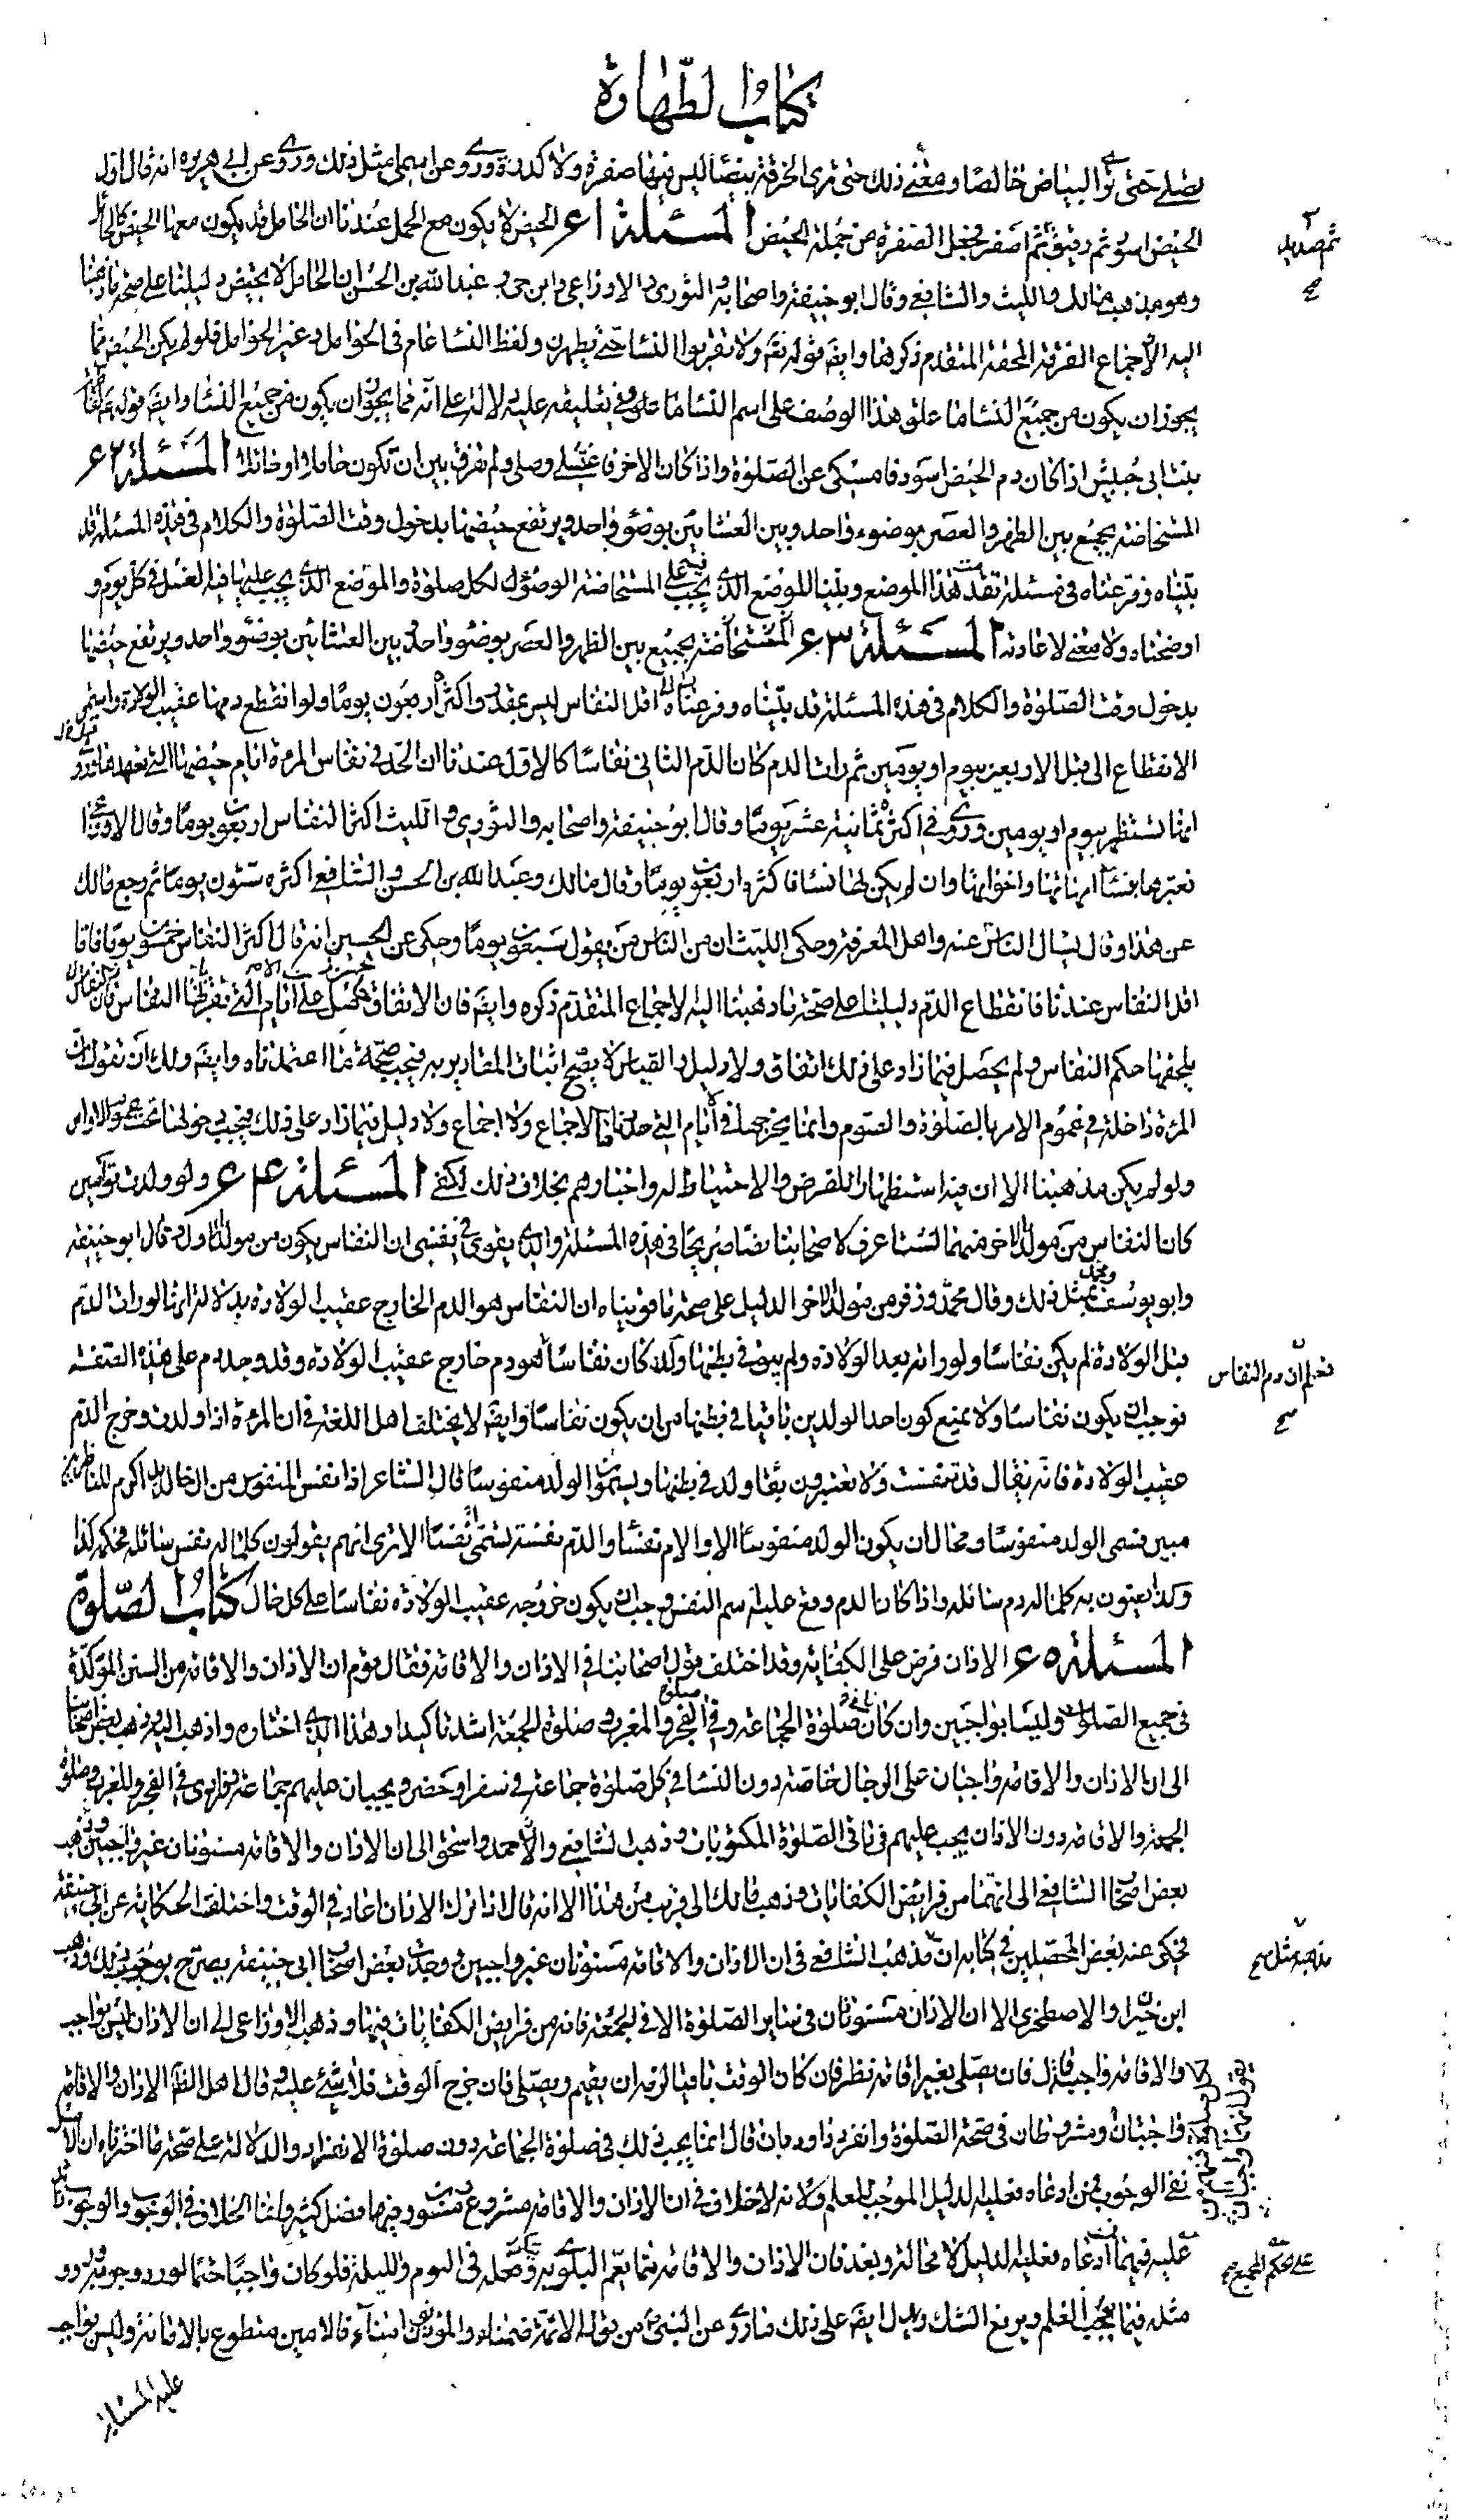 كتاب الطهارة
تصلي حتى تر البياض خالصا ومعنى ذلك حتى ترى الخرقة بيضا ليس فيها صفرة ولا كدرة وروى عن اسماء مثل ذلك وروى عن ابي هريرة انه قال اول
الحيض اسود ثم رقيق ثم اصفر فجعل الصفرة من جملة الحيض المسئلة ا ع الحيض لا يكون مع الحمل عندنا ان الحامل قد يكون معها الحيض كالحائل
وهو مذهب مالك والليث والشافعي وقال ابو حنيفة واصحابه والثوري والاوزاعي وابن حي و عبد الله بن الحسن ان الحامل لا تحيض دليلنا على صحة ما ذهبنا
اليه الاجماع الفرقة المحقة المتقدم ذكرها وايضا قوله تع ولا تقربوا النسا حتى يطهرن ولفظ النسا عام في الحوامل و غير الحوامل فلو لم يكن الحيض مما
يجوز ان يكون من جميع النسا ما علق هذا الوصف على اسم النسا ما علق وفي تعليقه عليه دلالة على انه مما يجوز ان يكون من جميع النسا وايضا قوله ع لفاطمة
بنت ابي حبيش اذا كان دم الحيض اسود فامسكى عن الصلوة واذا كان الاخر فاغتسلي وصلي ولم يفرق بين ان تكون حاملا او حائلا المسئلة ٢ ع
المستحاضة تجمع بين الظهر والعصر بوضوء واحد وبين العشائين بوضوء واحد ويرتفع حيضها بدخول وقت الصلوة والكلام في هذه المسئلة قد
بيناه وفرعناه في مسئلة تقدمت هذا الموضع وبينا الموضع الذي يجب فيه على المستحاضة الوضوء لكل صلوة والموضع الذي يجب عليها فيه الغسل في كل يوم و
اوضحناه ولا معنى لاعادته المسئلة ٣ ع المستحاضة تجمع بين الظهر والعصر بوضوء واحد وبين العشائين بوضوء واحد ويرتفع حيضها
بدخول وقت الصلوة والكلام في هذه المسئلة قد بيناه وفرعناه اقل النفاس ليس بمقدر واكثره اربعون يوما ولو انقطع دمها عقيب الولادة واستمر
الانقطاع الى قبل الاربعين بيوم او يومين ثم رات الدم كان الدم الثاني نفاسا كالاول عندنا ان الحد في نفاس المرءة ايام حيضها التي تعهدها وقد روى
انها تستظهر بيوم او يومين وروى في اكثره ثمانية عشر يوما وقال ابو حنيفة واصحابه والثوري و الليث اكثر النفاس اربعون يوما وقال الاوزاعي
نعتبرها بنسا امهاتها واخواتها وان لم يكن لها نسا فاكثره اربعون يوما وقال مالك وعبد الله بن الحسن والشافعي اكثره ستون يوما ثم رجع مالك
عن هذا وقال يسال الناس عنه واهل المعرفة وحكى الليث ان من الناس من يقول سبعون يوما وحكى عن الحسن انه قال اكثر النفاس خمسون يوما فاما
اقل النفاس عندنا فانقطاع الدم دليلنا على صحة ما ذهبنا اليه الاجماع المتقدم ذكره وايضا فان الاتفاق حصل على ايام التي تقر لها النفاس فان النفاس
يلحقها حكم النفاس ولم يحصل فيما زاد على ذلك اتفاق ولا دليل والقياس لا يصح اثبات المقادير به فيجب صحة ما اعتمدناه وايضا ولك ان تقول ان
المرءة داخلة في عموم الامر بالصلوة والصوم وانما يخرجها في الايام التي حددناها الاجماع ولا اجماع ولا دليل فيما زاد على ذلك فيجب دخولها تحت عموم الاوامر
ولو لم يكن مذهبنا الا ان فيه استظهارا للفرض والاحتياط له واختيارهم بخلاف ذلك لكفى المسئلة ٤ ع ولو ولدت توامين
كان النفاس من مولد الاخر منهما لست اعرف لاصحابنا نصا صريحا في هذه المسئلة والذي يقوى في نفسي ان النفاس يكون من مولد الاول وقال ابو حنيفة
وابو يوسف بمثل ذلك وقال محمد وزفر من مولد الاخر الدليل على صحة ما قويناه ان النفاس هو الدم الخارج عقيب الولادة بدلالة انها لو رات الدم
قبل الولادة لم يكن نفاسا ولو راته بعد الولادة ولم يبق في بطنها ولد كان نفاسا هو دم خارج عقيب الولادة وقد وجد دم على هذه الصفة
فوجب ان يكون نفاسا ولا يمنع كون احد الولدين باقيا في بطنها من ان يكون نفاسا وايضا لا يختلف اهل اللغة في ان المرءة اذا ولدت وخرج الدم
عقيب الولادة فانه يقال قد تنفست ولا يعتبرون بقا ولد في بطنها ويسمون الولد منفوسا قال الشاعر اذا نفس المنفوس من الخالد اكرم للناظرين
مبين فسمى الولد منفوسا ومحال ان يكون الولد منفوسا الا والام نفسا والدم نفسه تسمى نفسا الا ترى انهم يقولون كلما له نفس سائلة فحكمه كذا
وكذا يعنون به كلما له دم سائله واذا كان الدم وقع عليه اسم النفس وجب ان يكون خروجه عقيب الولادة نفاسا على كل حال كتاب الصلوة
المسئلة ٥ ع الاذان فرض على الكفاية وقد اختلف قول اصحابنا في الاذان والاقامة فقال قوم ان الاذان والاقامة من السنن المؤكدة
في جميع الصلوات وليسا بواجبين وان كانا في صلوة الجماعة وفي الفجر والمغرب و صلوة الجمعة اشد تاكيدا وهذا الذي اختاره واذهب اليه وذهب بعض اصحابنا
الى ان الاذان والاقامة واجبان على الرجال خاصة دون النسا في كل صلوة جماعة في سفر او حضر ويجبان عليهم جماعة وفرادى في الفجر والمغرب وصلوة
الجمعة والاقامة دون الاذان يجب عليهم في باقي الصلوة المكتوبات وذهب الشافعي والاحمد واسحق الى ان الاذان والاقامة مسنونان غير واجبين وذهب
بعض اصحاب الشافعي الى انهما من فرايض الكفايات وذهب مالك الى قريب من هذا الا انه قال اذا ترك الاذان اعاد في الوقت واختلفت الحكاية عن ابي حنيفة
فحكى عنه بعض المحصلين في كتابه ان مذهب الشافعي في ان الاذان والاقامة مسنونان غير واجبين ووجدت بعض اصحاب ابي حنيفة يصرح بوجوب ذلك وذهب
ابن خيران والاصطخري الا ان الاذان مسنونان في ساير الصلوة الا في الجمعة فانه من فرايض الكفايات فيها وذهب الاوزاعي الى ان الاذان ليس بواجب
والاقامة واجبة قال فان صلى بغير اقامة نظر فان كان الوقت باقيا لزمه ان يقيم ويصلي فان خرج الوقت فلا شئ عليه وقال اهل الظاهر الاذان والاقامة
واجبتان ومشروطان في صحة الصلوة وانفرد داود بان قال انما يجب ذلك في صلوة الجماعة دون صلوة الانفراد والدلالة على صحة ما اخترناه ان الاصل
نفي الوجوب فمن ادعاه فعليه الدليل الموجب للعلم ولانه لا خلاف في ان الاذان والاقامة مشروع مسنون وفيهما فضل كثير وانما الخلاف في الوجوب والوجوب زائد
عليه فيهما فمن ادعاه فعليه الدليل لا محالة وبعد فان الاذان والاقامة مما يعم البلوى به وفعله في اليوم والليلة فلو كان واجبا حتما لورد وجوبه ورود
مثله فيما يوجب العلم ويرفع الشك ويدل ايضا على ذلك ما روى عن النبي ص من قوله الائمة ضمناء والمؤذنون امناء فالامين متطوع بالاقامة وليس بواجب
عليه المسئلة
فعلم ان دم النفاس
صح
مذهبه مثل صح
على حكم الجميع صح